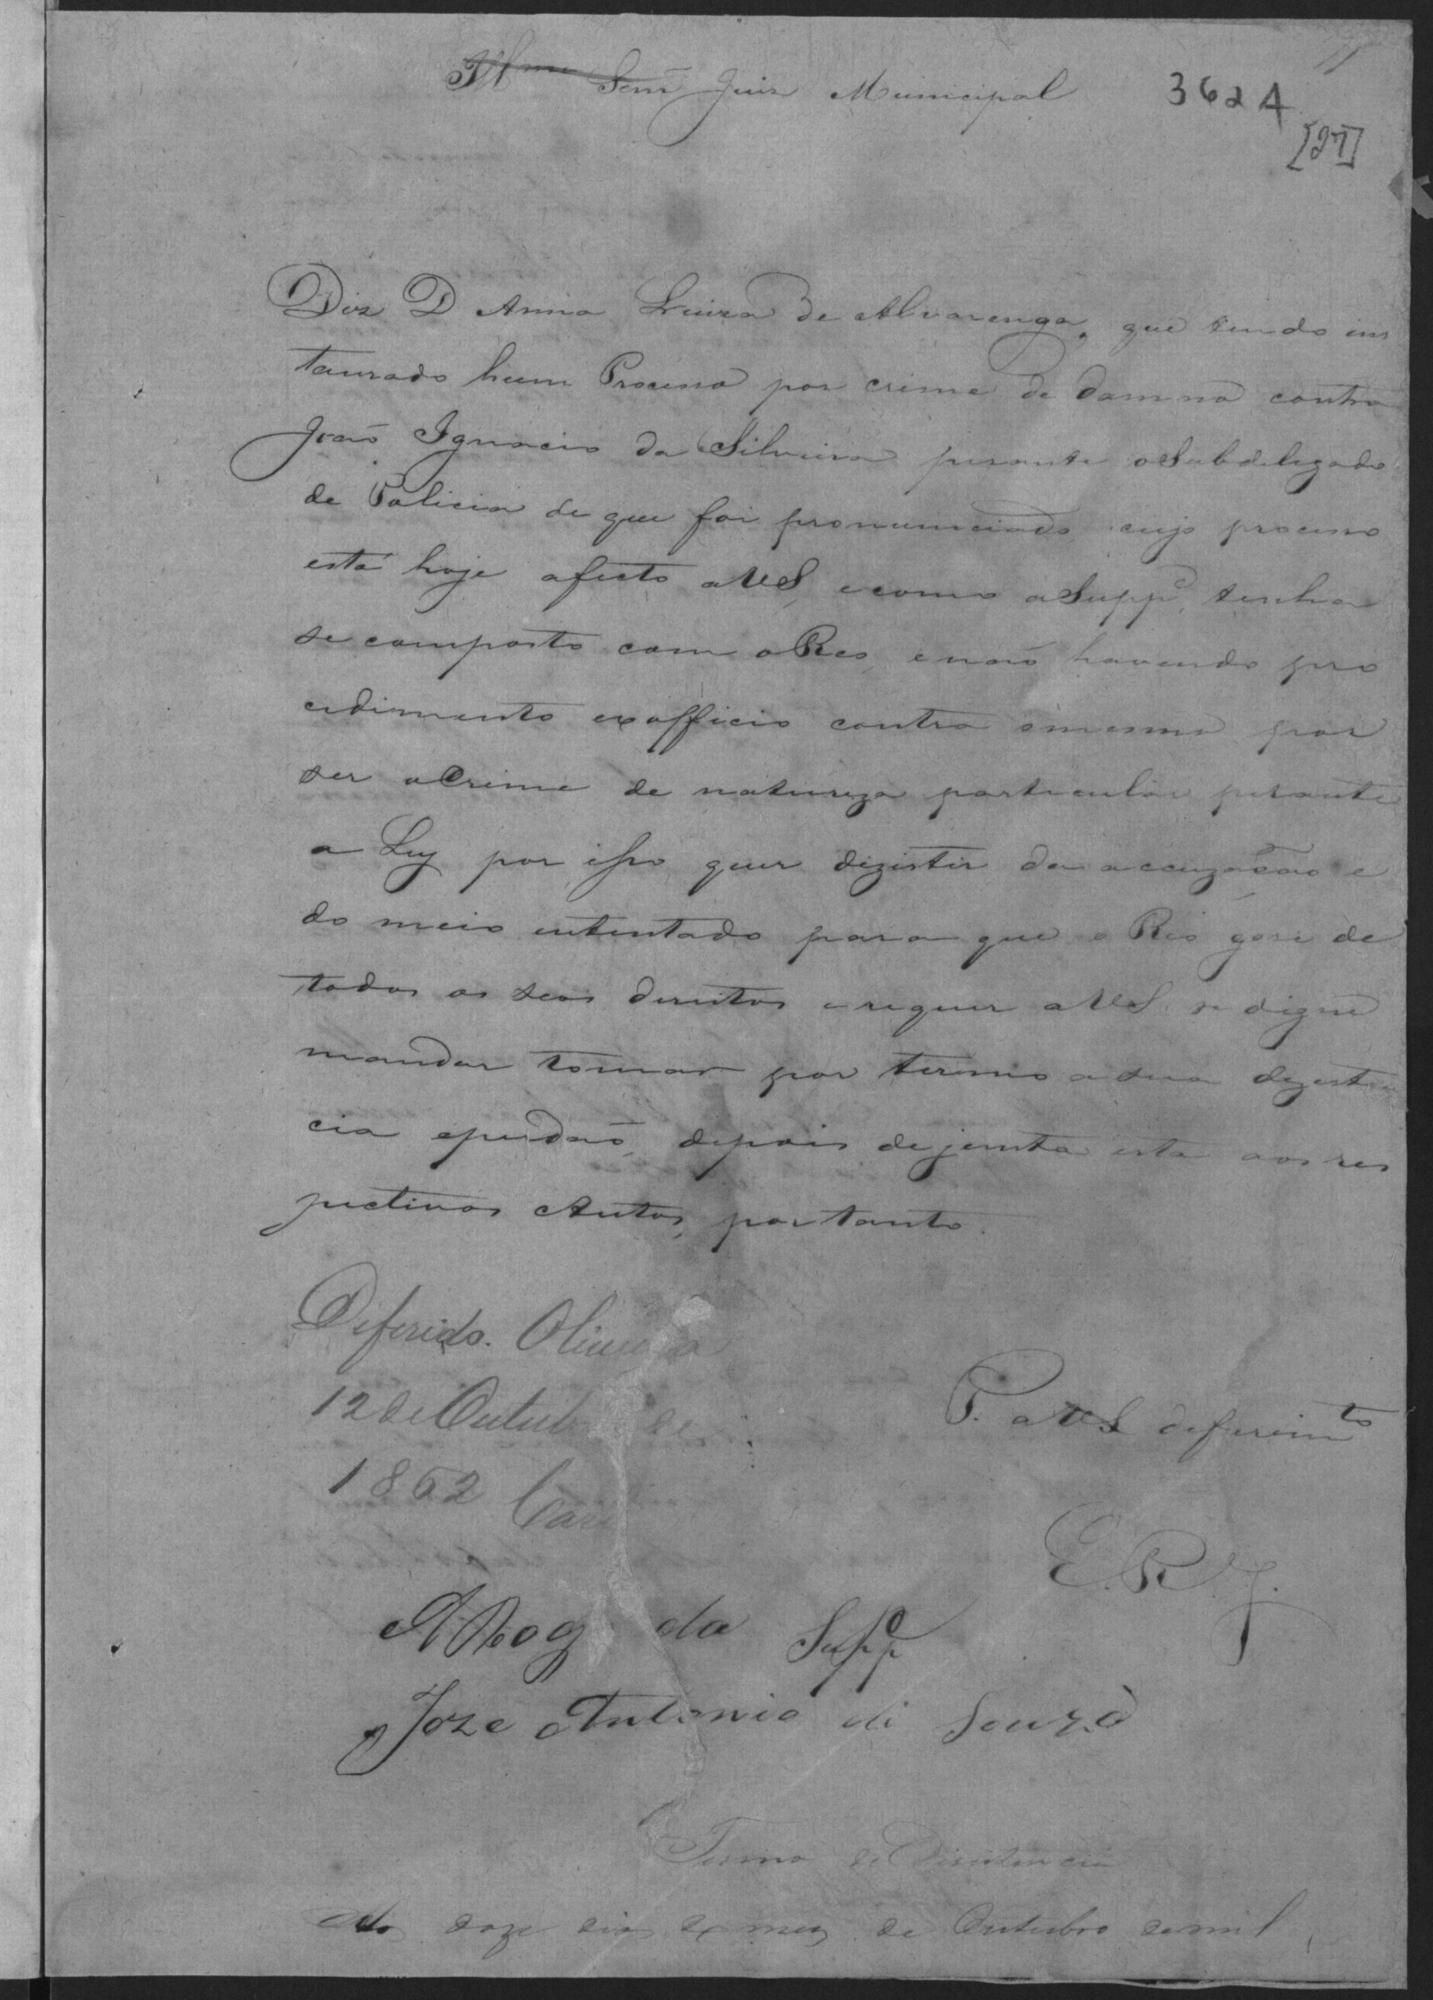 Illmo Senr Juiz Municipal
3624
[27]
Diz D Anna Luiza de Alvarenga, que tendo ins
taurado hum Processo por crime de damno contra
João Ignacio da Silveira perante o Subdelegado
de Policia de que foi pronunciado cujo processo
está hoje afecto a VS, e como a Suppe, tenha
se composto com o Reo, e não havendo pro
cedimento exofficio contra o mesmo por
ser o Crime de natureza particular perante
a Ley por isso quer dezistir da accuzação e
do meio intentado para que o Reo gose de
todos os seos direitos e requer a VS. se digne
mandar tomar por termo a sua dezisten
cia e perdão, depois de junta esta aos res
pectivos Autos, portanto.
Deferido. Oliveira
12 de Outubro de
1862
P. a VS deferimto
E. R. J.
A Rogo da Suppe
Joze Antonio de Souza
Termo de Desistencia
Aos doze dias do mez de Outubro de mil